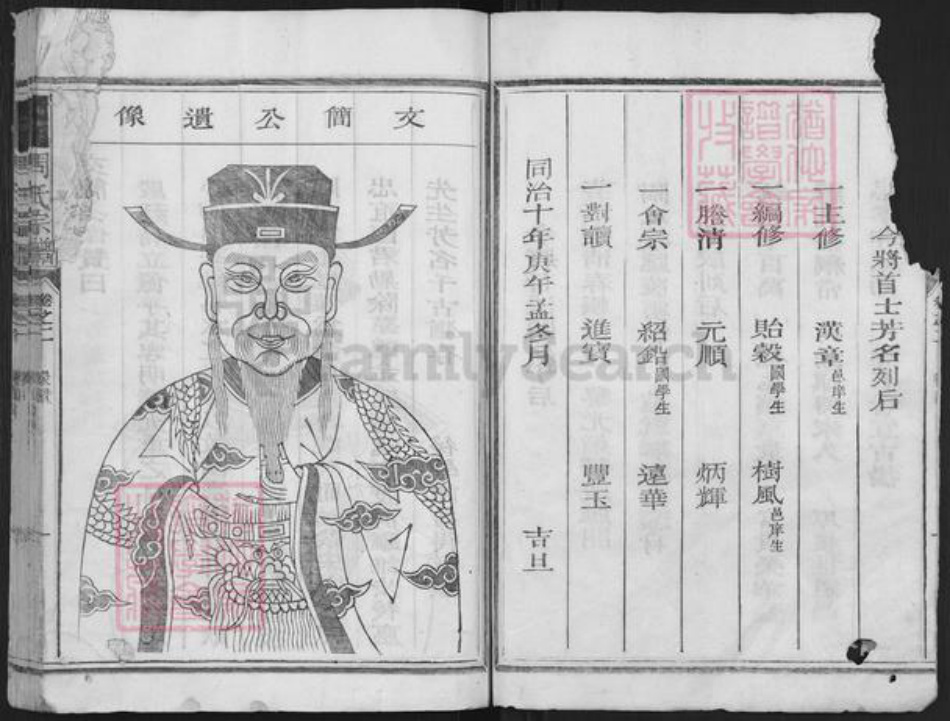 今將首士芳名列后
一主修 漢章邑庠生
一編修 貽穀國學生 樹風邑庠生
一謄清 元順 炳輝
一會宗 紹鉛國學生 遠華
一對讀 進寶 豐玉
同治十年庚午孟冬月 吉旦
文簡公遺像
周氏宗譜
卷之一
FamilySearch